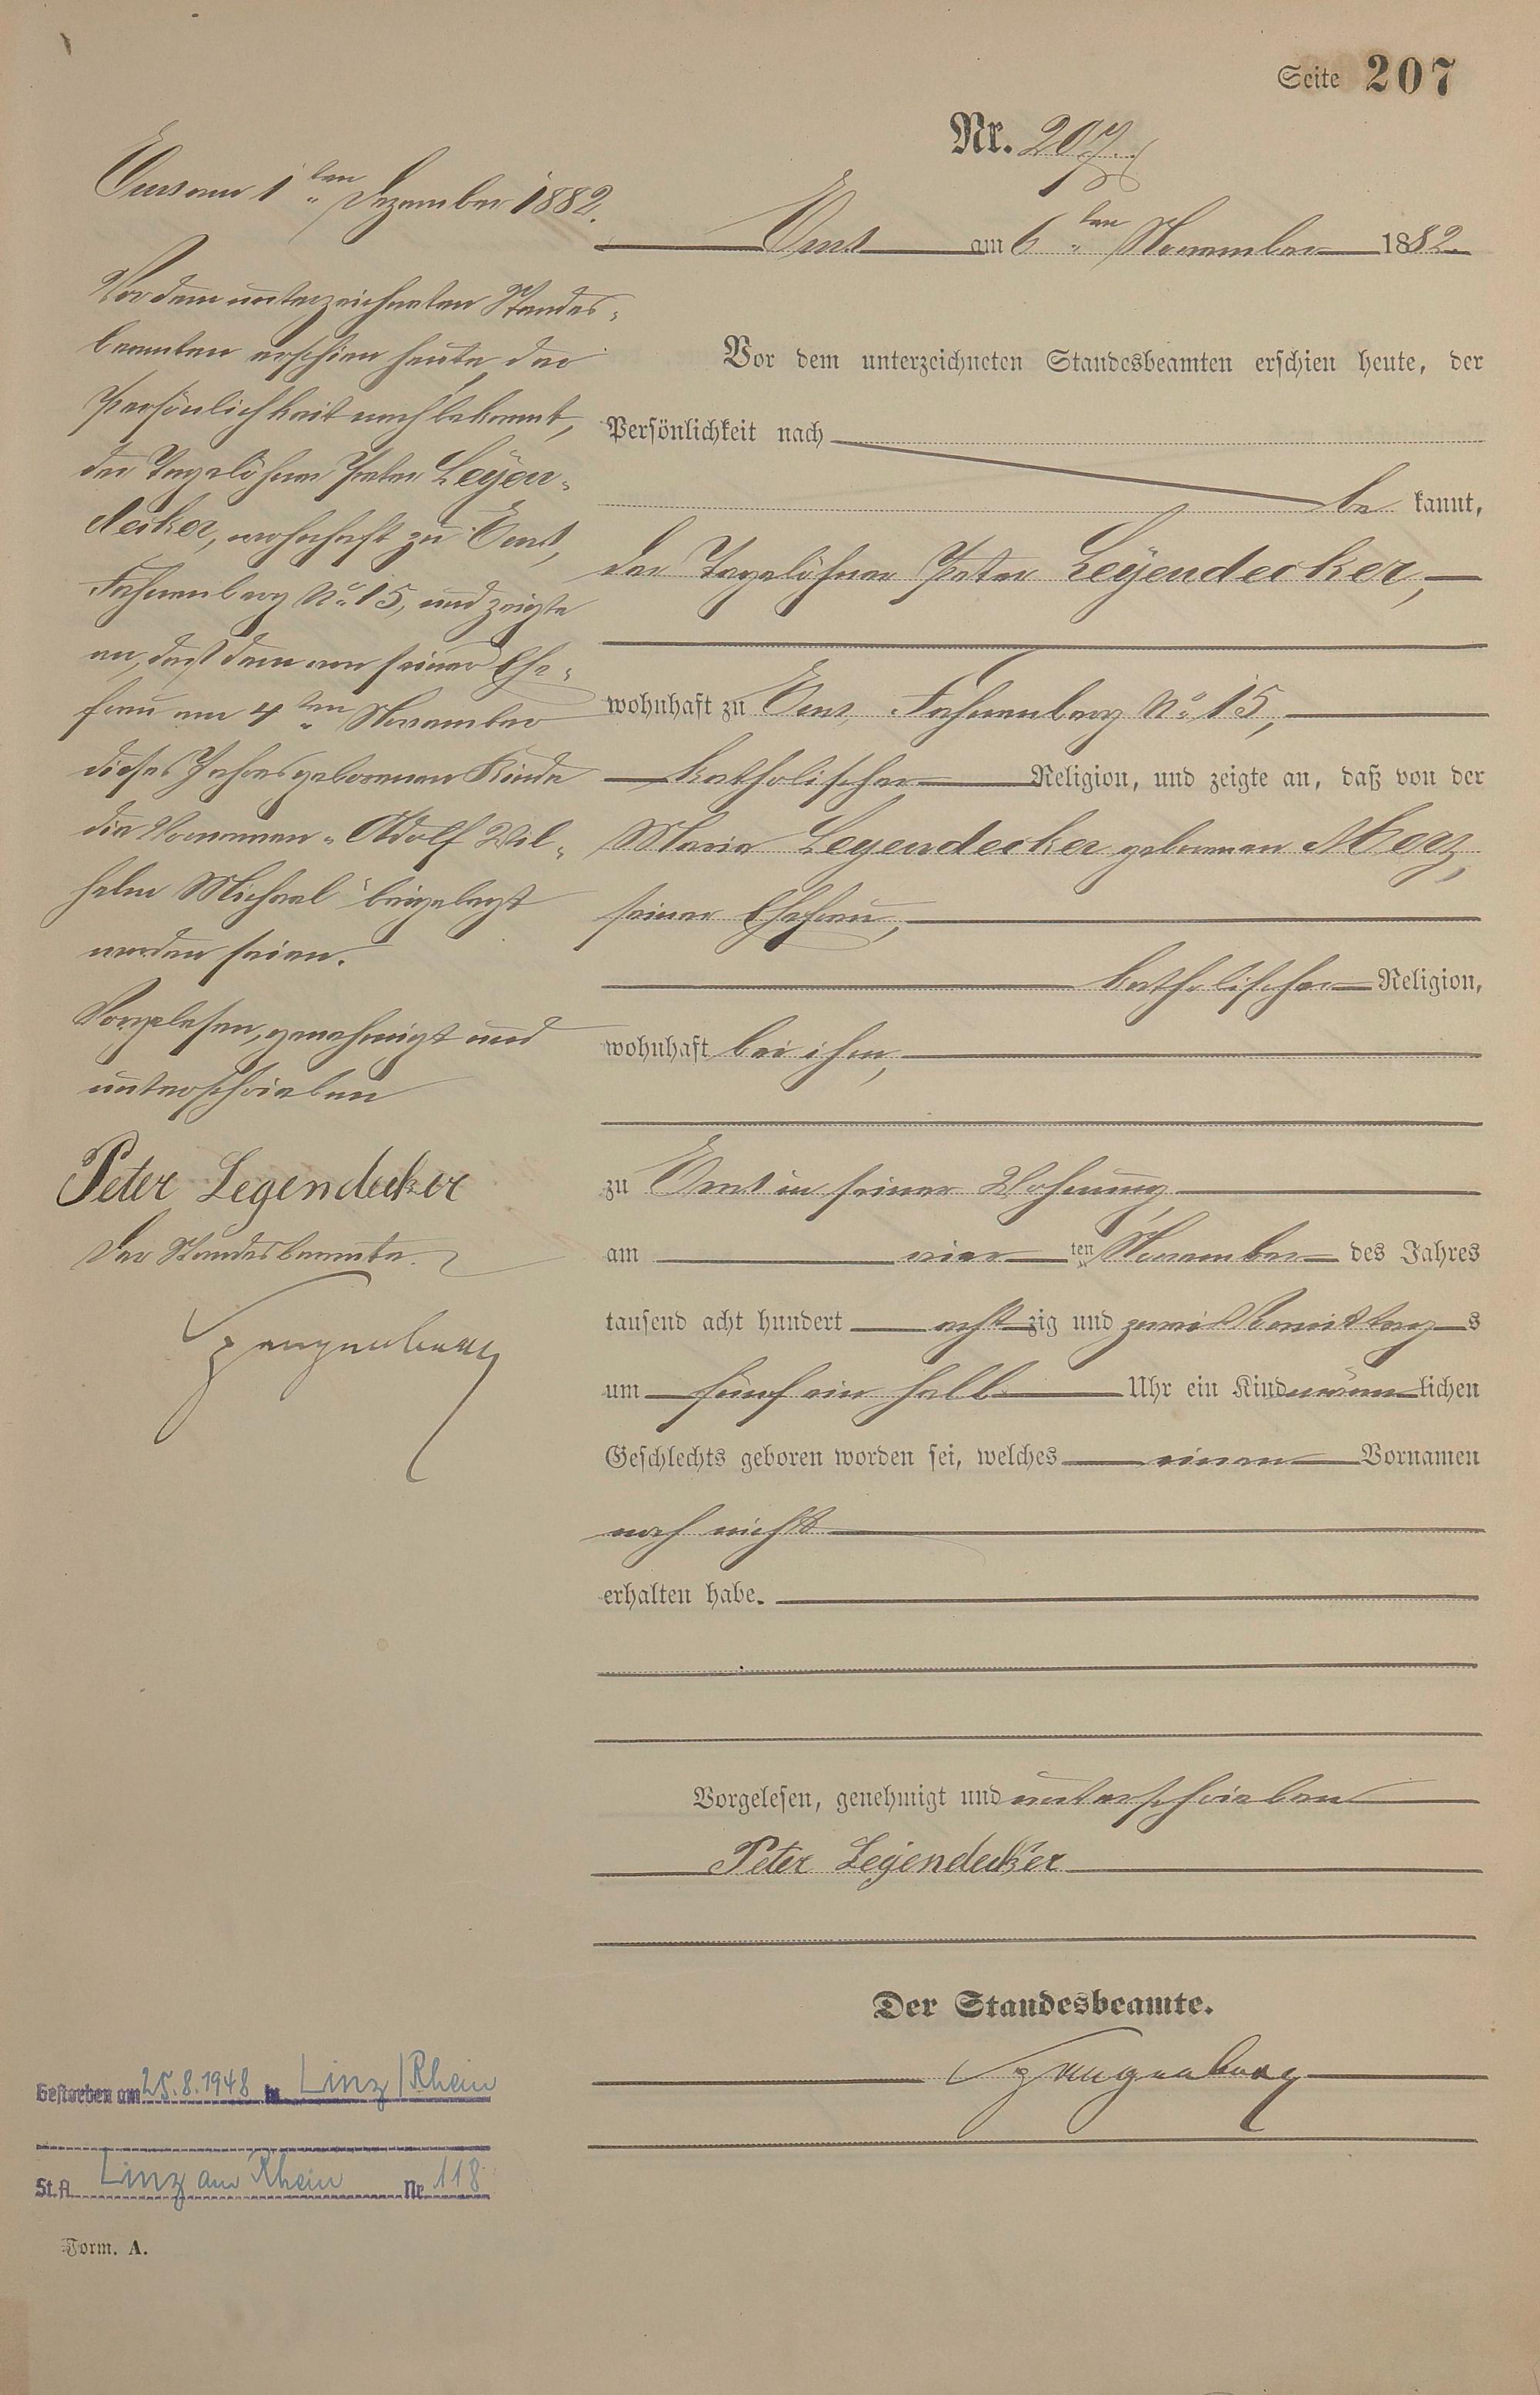 Seite 207
Nr. 207.
Ems am 6ten November 1882.
Vor dem unterzeichneten Standesbeamten erschien heute, der
Persönlichkeit nach
be kannt,
der Tagelöhner Peter Leÿendecker,
wohnhaft zu Ems, Fahnenberg No 15,
katholischer Religion, und zeigte an, daß von der
Maria Leyendecker geborenen Merz,
seiner Ehefrau,
katholischer Religion,
wohnhaft bei ihm,
zu Ems in seiner Wohnung,
am vier ten November des Jahres
tausend acht hundert acht zig und zwei Vormittag s
um fünf ein halb Uhr ein Kind männ lichen
Geschlechts geboren worden sei, welches einen Vornamen
noch nicht
erhalten habe.
Vorgelesen, genehmigt und unterschrieben
Peter Leÿendecker
Der Standesbeamte.
Ems am 1ten Dezember 1882.
Vor dem unterzeichneten Standes-
beamten erschien heute, der
Persönlichkeit nach bekannt,
der Tagelöhner Peter Leÿen-
decker, wohnhaft zu Ems,
Fahnenberg No 15, und zeigte
an, daß dem von seiner Ehe-
frau am 4ten November
dieses Jahres geborenen Kinde
die Vornamen „Adolf Wil-
helm Michael“ beigelegt
worden seien.
Vorgelesen, genehmigt und
unterschrieben
Peter Legendecker
Der Standesbeamte.
Gestorben am 25.8.1948 in Linz/Rhein
St.A. Linz am Rhein Nr. 118
Form. A.